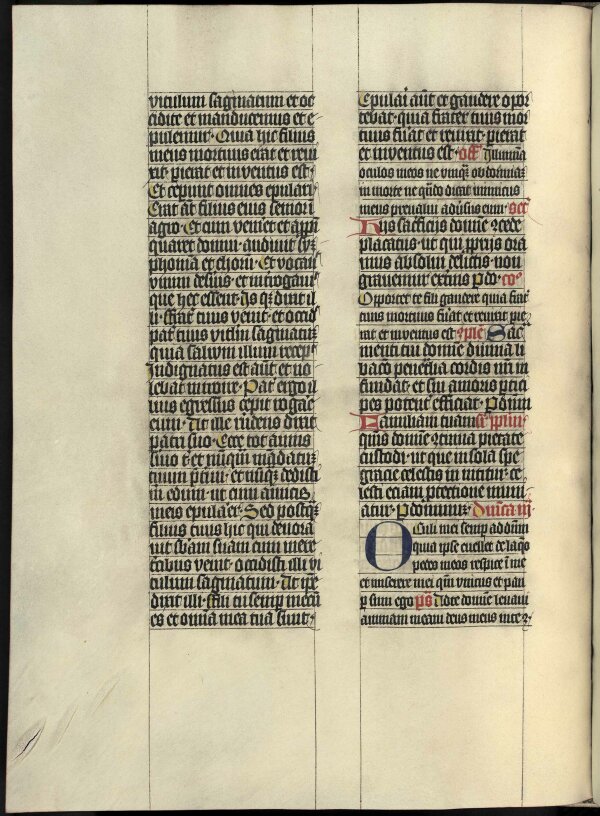 vitulum saginatum et oc
cidite et manducemus et e
pulemur. Quia hic filius
meus mortuus erat et revi
xit. perierat et inventus est.
Et ceperunt omnes epulari.
Erat aut filius eius senior i
agro. Et cum veniret et appri
quaret domui. audivit sy
phoniam et chorum. Et vocavit
unum de servis. et interrogavit
que hec essent. Is que dixit il
li. frater tuus venit. et occid
pater tuus vitulum saginatum
quia salvum illum recepit
Indignatus est aut et no
lebat introire. Pater ergo il
lius egressus cepit rogare
eum. At ille respondens dixit
patri suo. Ecce tot annis
servio tibi et nunquam mandatum
tuum preterivi. et nunquam dedisti
m edum. ut cum amicis
meis epularer. Sed postquam
filius tuus hic qui devora
vit substantiam suam cum mere
tricibus venit. occidisti illi vi
tulum saginatum. At ipse
dixit illi. fili tu semper mecum
es et omnia mea tua sunt.
Epulari aut et gaudere opor
tebat. quia frater tuus mor
tuus erat et revixit. perierat
et inventus est. Off Illumina
oculos meos ne unquam obdormiam
in morte ne quando dicat inimicus
meus prevalui adversus eum. Secr
His sacrificiis domine concede
placatus. ut qui propriis ora
mus absolvi delictis. non
gravemur externis. P do. co
Oportet te fili gaudere quia frater
tuus mortuus fuerat et revixit. per
ierat et inventus est. Sac
menti tui domine divina li
bacio penetralia cordis nri in
fundat. et sui amoris pertici
pes potenter efficiat. P dnm
Familiam tuam Sr pplm
quesumus domine continua pietate
custodi. ut que in sola spe
gracie celestis innititur. ce
lesti eciam protectione muni
atur. P dominum. Dnica iij
Oculi mei semp ad dominum
quia ipse evellet de laqueo
pedes meos respice in me
et miserere mei quoniam unicus et pau
per sum ego ps Ad te domine levavi
animam meam deus meus in te